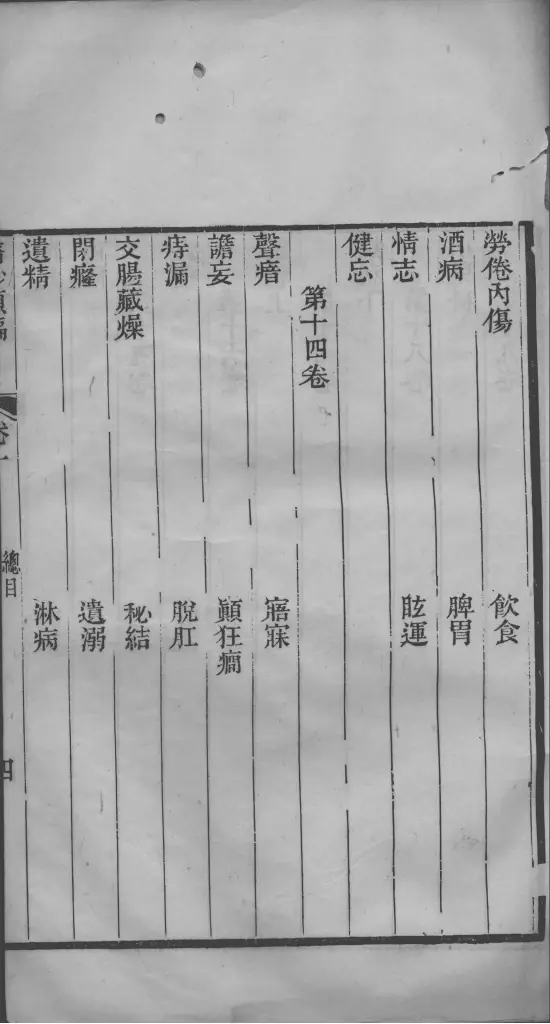 勞倦內傷 飲食
酒病 脾胃
情志 眩運
健忘
第十四卷
聲瘖 寤寐
譫妄 顚狂癇
痔漏 脫肛
交腸藏燥 秘結
閉癃 遺溺
遺精 淋病
總目 四